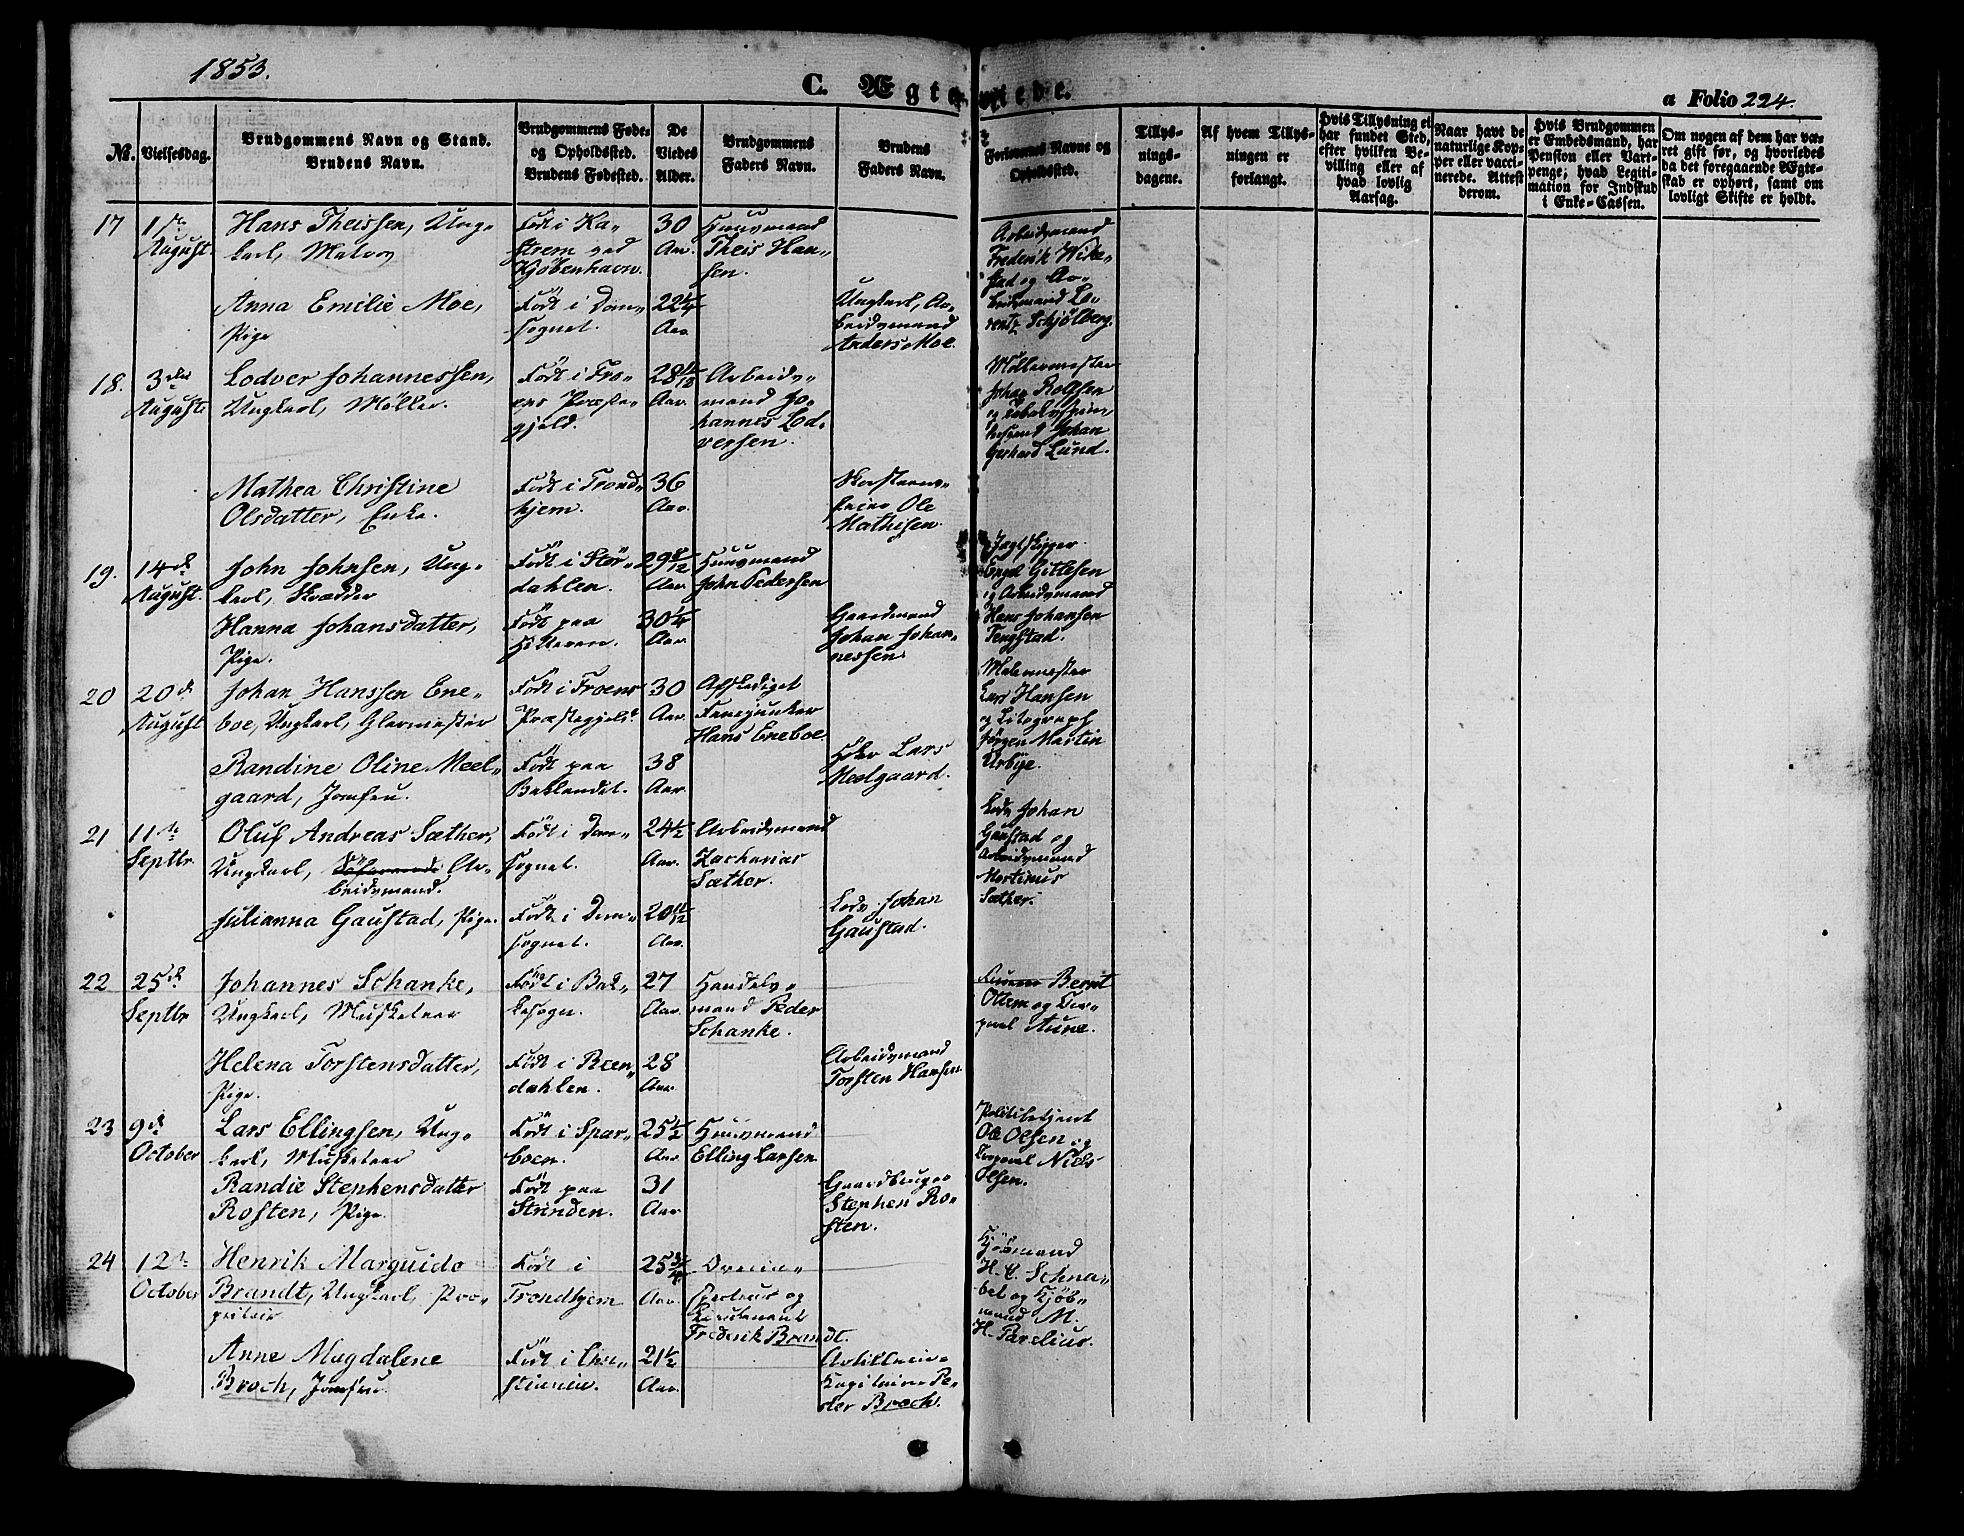 1853.
C. Ægteviede.
a Folio 224.
Nr.
Vielsesdag.
Brudgommens Navn og Stand.
Brudens Navn.
Brudgommens Føde-
og Opholdssted.
Brudens Fødested.
De
Viedes
Alder.
Brudgommens
Faders Navn.
Brudens
Faders Navn.
Forlovernes Navne og
Opholdssted.
Tillys-
nings-
dagene.
Af hvem Tillys-
ningen er
forlangt.
Hvis Tillysning ei
har fundet Sted,
efter hvilken Be-
villing eller af
hvad lovlig
Aarsag.
Naar havt de
naturlige Kop-
per eller vacci-
nerede. Attest
derom.
Hvis Brudgommen
er Embedsmand, har
Pension eller Vart-
penge; hvad Legiti-
mation for Indskud
i Enke-Cassen.
Om nogen af dem har væ-
ret gift før, og hvorledes
da det foregaaende Ægte-
skab er ophørt, samt om
lovligt Skifte er holdt.
17
1ste
August.
Hans Theissen, Ung-
karl, Matros
Født i Ka-
strem ved
Kjøbenhavn.
30
Aar.
Huusmand
Theis Han-
sen.
Arbeidsmand
Frederik Wik-
stad og Ar-
beidsmand Lo-
rentz Schjølberg.
Anna Emilie Moe,
Pige
Født i Dom-
sognet.
22 1/4
Aar.
Ungkarl, Ar-
beidsmand
Anders Moe.
18.
3die
August.
Lodver Johannessen,
Ungkarl, Møller.
Født i Fro-
ens Præste-
gjeld.
28 11/12
Aar.
Arbeids-
mand Jo-
hannes Lod-
versen.
Møllermester
Johan Rolfsen
og
Johan
Gerhard Lund.
Mathea Christine
Olsdatter, Enke.
Født i Trond-
hjem.
36
Aar.
Skorsteens-
feier Ole
Mathisen.
19.
14de
August.
John Johnsen, Ung-
karl, Skrædder
Født i Stør-
dahlen.
29 8/12
Aar.
Huusmand
John Pedersen
Jagtskipper
Engel Gitlesen
og Arbeidsmand
Hans Johansen
Tengstad.
Hanna Johansdatter,
Pige.
Født paa
Hitteren.
30 1/4
Aar.
Gaardmand
Johan Johan-
nessen.
20
20de
August
Johan Hanssen Ene-
boe, Ungkarl, Glarmester
Født i Froens
Præstegjeld.
30
Aar.
Afskediget
Fanejunker
Hans Eneboe.
Malermester
Lars Hansen
og Litograph
Jørgen Martin
Urbye.
Randine Oline Meel-
gaard, Jomfru.
Født paa
Baklandet.
38
Aar.
Lars
Meelgaard.
21
11te
Septbr.
Oluf Andreas Sæther,
Ungkarl, Ar-
beidsmand.
Født i Dom-
sognet.
24 1/2
Aar.
Arbeidsmand
Zacharias
Sæther.
Lods Johan
Gaustad og
Arbeidsmand
Martinus
Sæther.
Julianna Gaustad, Pige.
Født i Dom-
sognet.
20 11/12
Aar.
Lods Johan
Gaustad.
22
25de
Septbr
Johannes Schanke,
Ungkarl, Musketeer
Født i Bak-
kesogn.
27
Aar.
Handels-
mand Peder
Schanke.
Bernt
Ottem og Cor-
poral Aune.
Helena Torstensdatter,
Pige.
Født i Reen-
dahlen.
28
Aar.
Arbeidsmand
Torsten Hansen
23
9de
October
Lars Ellingsen, Ung-
karl, Musketeer
Født i Spar-
boen.
25 1/2
Aar
Huusmand
Elling Larsen
Politibetjent
Ole Olsen og
Corporal Niels
Olsen.
Randie Stephensdatter
Rosten, Pige.
Født paa
Strinden.
31
Aar.
Gaardbruger
Stephen Ro-
sten.
24
12te
October
Henrik Marguido
Brandt, Ungkarl, Pro-
prietair
Født i
Trondhjem
25 3/4
Aar.
og
Lieutenant
Frederik Brandt.
Kjøbmand
H. C. Schna-
bel og Kjøb-
mand M.
H. Parelius.
Anne Magdalene
Broch, Jomfru.
Født i Chri-
21 1/2
Aar.
Artilleri-
Kapitaine Pe-
der Broch.